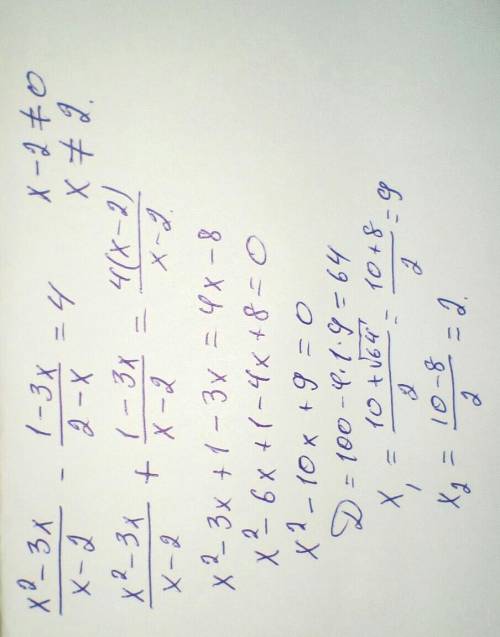 x² - 3x / x - 2 - 1 - 3x / 2 - x = 4    x - 2 ≠ 0
x ≠ 2.
x² - 3x / x - 2 + 1 - 3x / x - 2 = 4(x - 2) / x - 2.
x² - 3x + 1 - 3x = 4x - 8
x² - 6x + 1 - 4x + 8 = 0
x² - 10x + 9 = 0
D = 100 - 4·1·9 = 64
x₁ = 10 + √64 / 2 = 10 + 8 / 2 = 9
x₂ = 10 - 8 / 2 = 2.